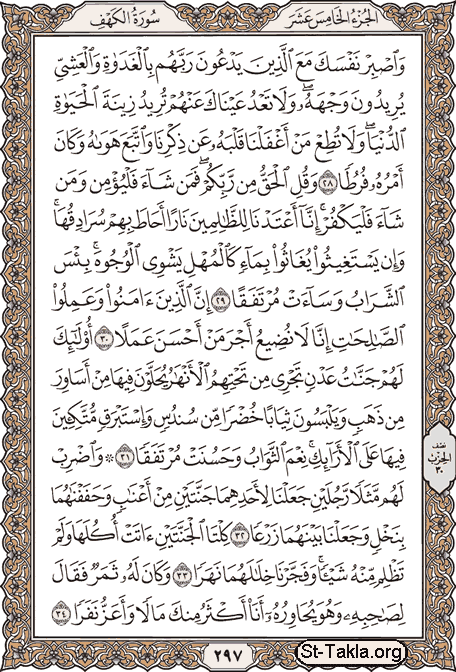 الجُزْءُ الخَامِسُ عَشَرَ
سُورَةُ الكَهْفِ
وَٱصْبِرْ نَفْسَكَ مَعَ ٱلَّذِينَ يَدْعُونَ رَبَّهُم بِٱلْغَدَوٰةِ وَٱلْعَشِىِّ
يُرِيدُونَ وَجْهَهُۥ ۖ وَلَا تَعْدُ عَيْنَاكَ عَنْهُمْ تُرِيدُ زِينَةَ ٱلْحَيَوٰةِ
ٱلدُّنْيَا ۖ وَلَا تُطِعْ مَنْ أَغْفَلْنَا قَلْبَهُۥ عَن ذِكْرِنَا وَٱتَّبَعَ هَوَىٰهُ وَكَانَ
أَمْرُهُۥ فُرُطًا ٢٨ وَقُلِ ٱلْحَقُّ مِن رَّبِّكُمْ ۖ فَمَن شَآءَ فَلْيُؤْمِن وَمَن
شَآءَ فَلْيَكْفُرْ ۚ إِنَّآ أَعْتَدْنَا لِلظَّـٰلِمِينَ نَارًا أَحَاطَ بِهِمْ سُرَادِقُهَا ۚ
وَإِن يَسْتَغِيثُوا۟ يُغَاثُوا۟ بِمَآءٍ كَٱلْمُهْلِ يَشْوِى ٱلْوُجُوهَ ۚ بِئْسَ
ٱلشَّرَابُ وَسَآءَتْ مُرْتَفَقًا ٢٩ إِنَّ ٱلَّذِينَ ءَامَنُوا۟ وَعَمِلُوا۟
ٱلصَّـٰلِحَـٰتِ إِنَّا لَا نُضِيعُ أَجْرَ مَنْ أَحْسَنَ عَمَلًا ٣٠ أُو۟لَـٰٓئِكَ
لَهُمْ جَنَّـٰتُ عَدْنٍ تَجْرِى مِن تَحْتِهِمُ ٱلْأَنْهَـٰرُ يُحَلَّوْنَ فِيهَا مِنْ أَسَاوِرَ
مِن ذَهَبٍ وَيَلْبَسُونَ ثِيَابًا خُضْرًا مِّن سُندُسٍ وَإِسْتَبْرَقٍ مُّتَّكِـِٔينَ
فِيهَا عَلَى ٱلْأَرَآئِكِ ۚ نِعْمَ ٱلثَّوَابُ وَحَسُنَتْ مُرْتَفَقًا ٣١ ۞ وَٱضْرِبْ
لَهُم مَّثَلًا رَّجُلَيْنِ جَعَلْنَا لِأَحَدِهِمَا جَنَّتَيْنِ مِنْ أَعْنَـٰبٍ وَحَفَفْنَـٰهُمَا
بِنَخْلٍ وَجَعَلْنَا بَيْنَهُمَا زَرْعًا ٣٢ كِلْتَا ٱلْجَنَّتَيْنِ ءَاتَتْ أُكُلَهَا وَلَمْ
تَظْلِم مِّنْهُ شَيْـًٔا ۚ وَفَجَّرْنَا خِلَـٰلَهُمَا نَهَرًا ٣٣ وَكَانَ لَهُۥ ثَمَرٌ فَقَالَ
لِصَـٰحِبِهِۦ وَهُوَ يُحَاوِرُهُۥٓ أَنَا۠ أَكْثَرُ مِنكَ مَالًا وَأَعَزُّ نَفَرًا ٣٤
نصف
الحزب
٣٠
٢٩٧
St-Takla.org